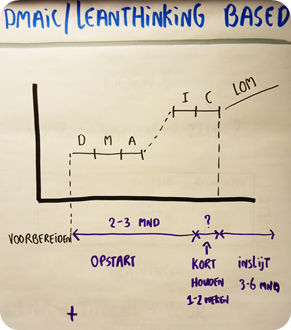 DMAIC/LEANTHINKING BASED
LOM
I C
D M A
2-3 MND ?
VOORBEREIDEN
OPSTART KORT inslijt
HOUDEN 3-6 MND
1-2 WEKEN
+